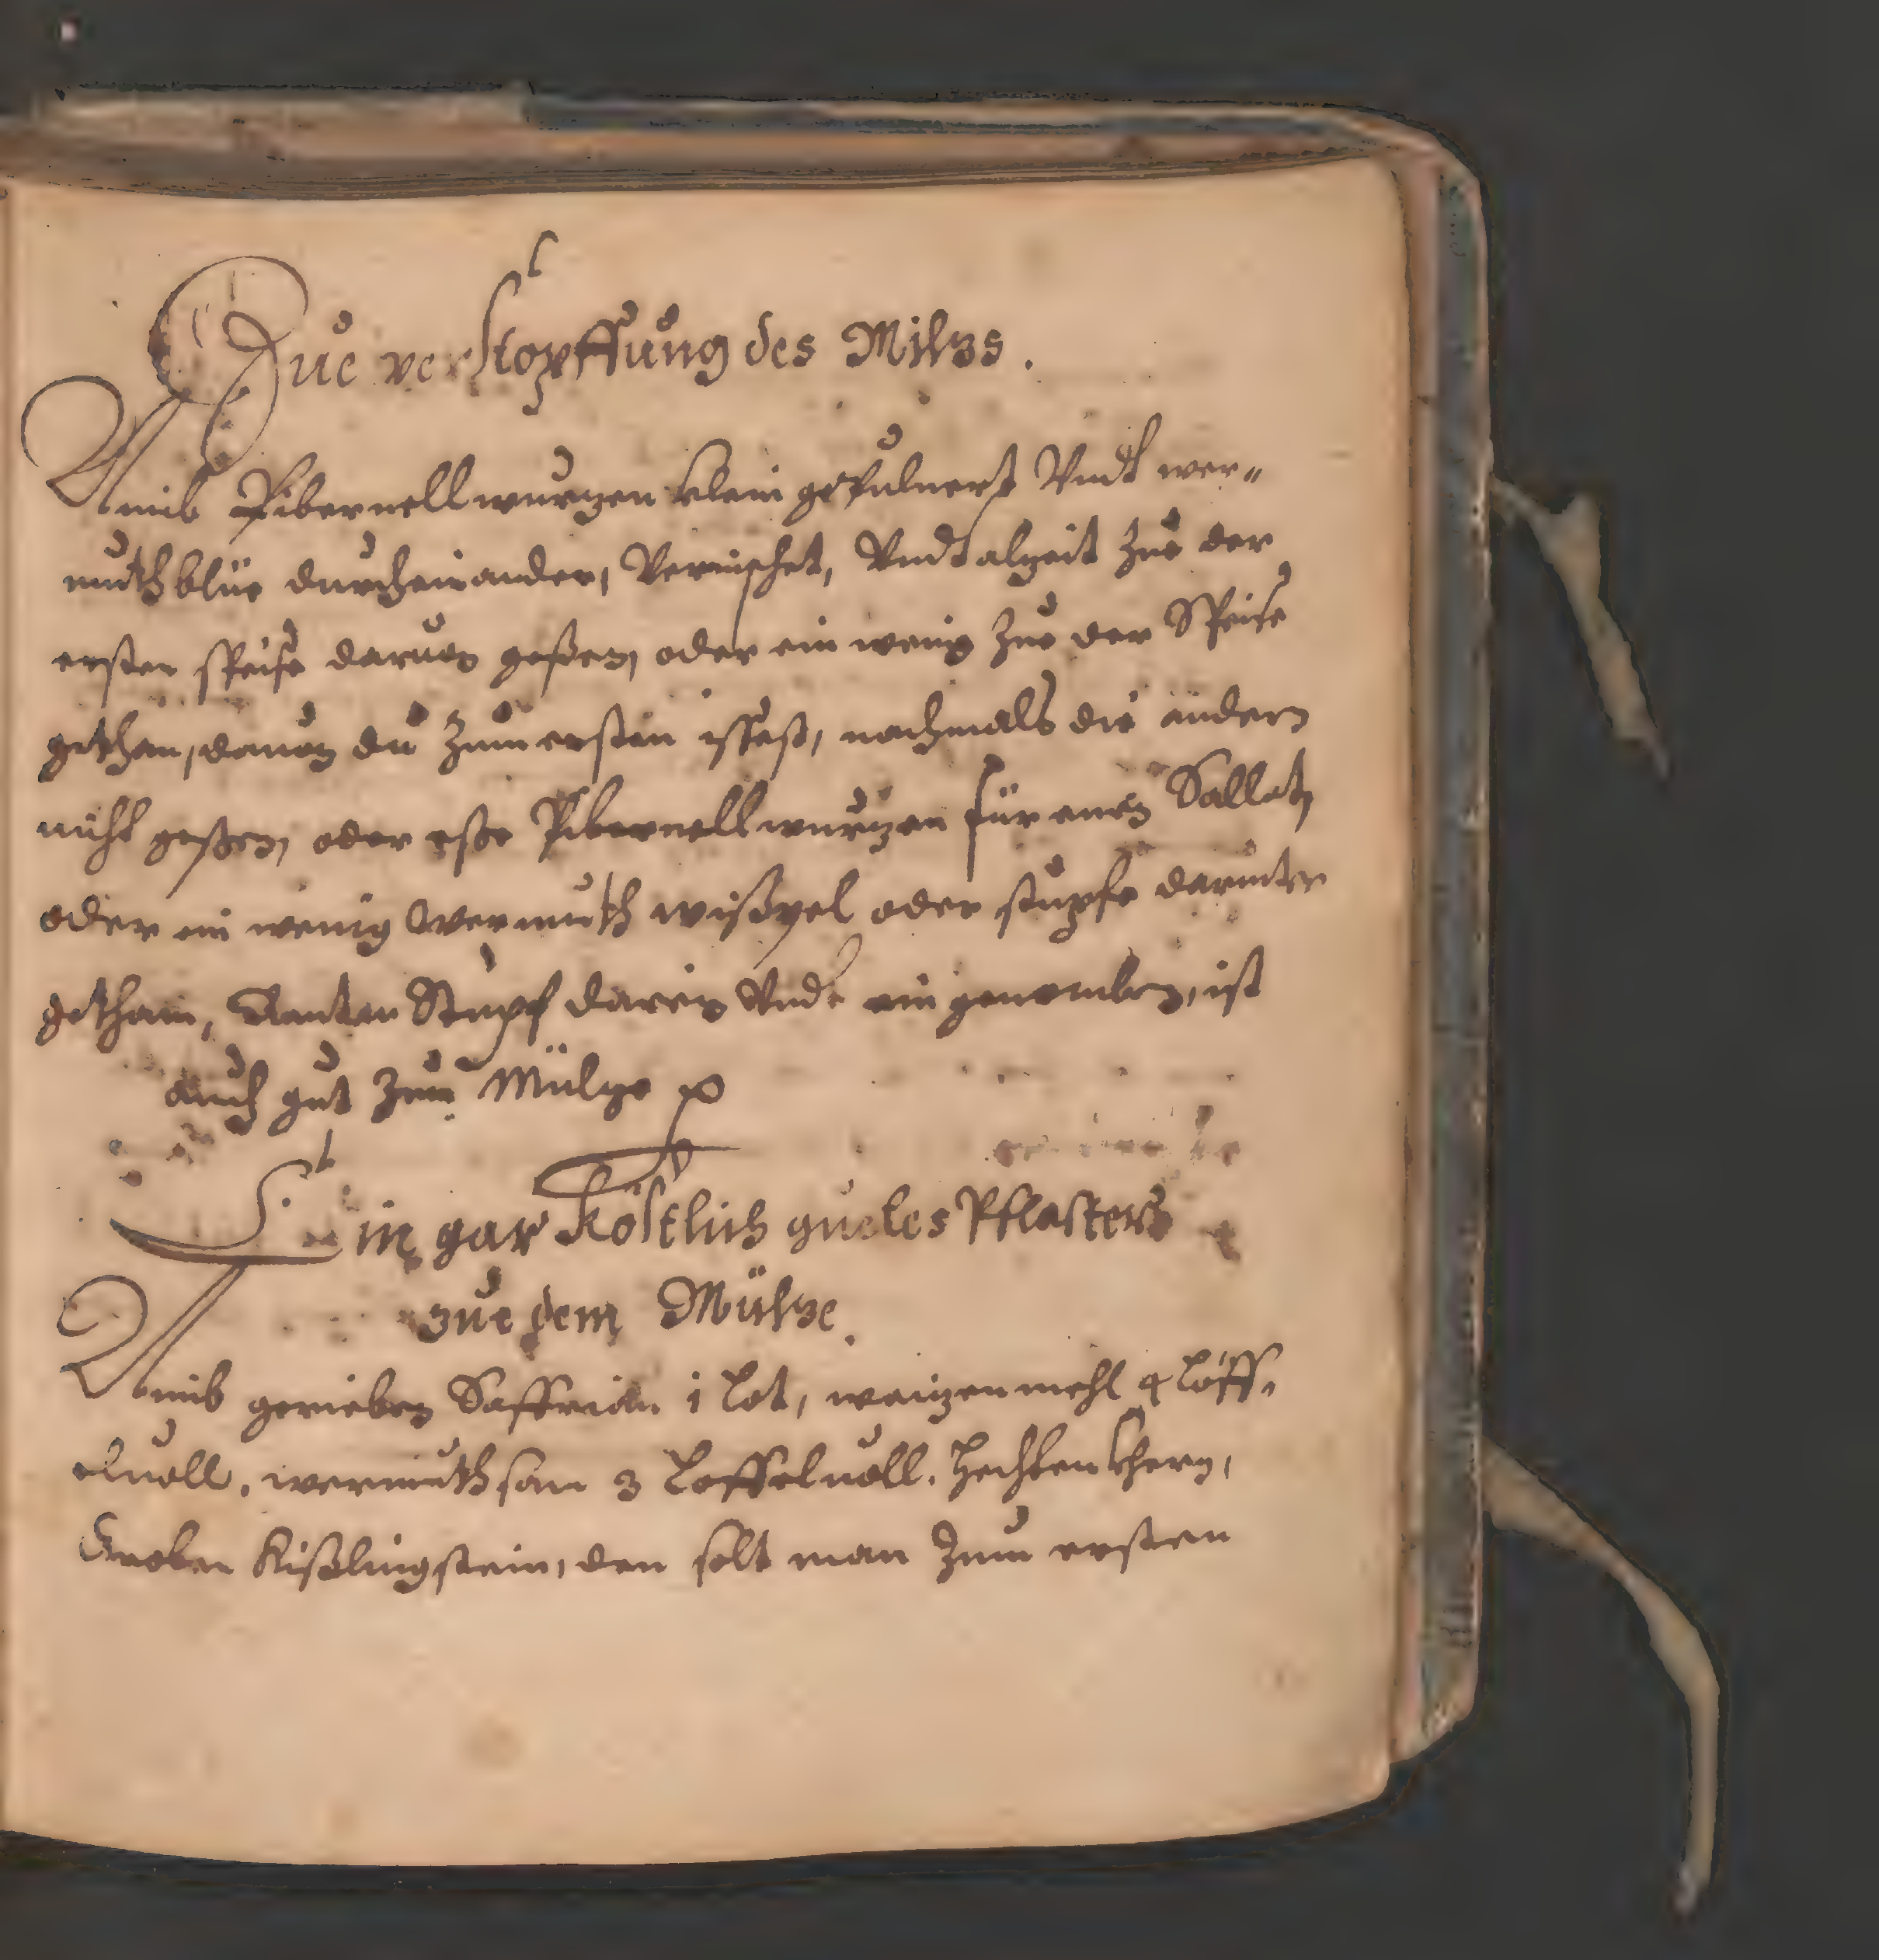 Zue verstopffung des Milzs.
Nimb Pibernellwurzen klein gepuluert Vndt wer„
muthblüe durcheinander, Vermischet, Vndt alzeit Zue der
ersten speise daruon geßen, oder ein wenig Zue der Speise
gethan, dauon du Zum ersten issest, nachmals die andern
nicht geßen, oder esse Pibernellwurzen für einen Sallet,
oder ein wenig Wermuth wißpel oder stupfe darunter
gethain, Stupf darein Vndt ein genomben, ist
auch gut Zum Mülze
Ein gar köstlich guetes Pflaster
zue dem Mülze.
Nimb gerieben Saffrian 1 Lot, waizenmehl 4 Löff„
eluoll. wermuthsam 3 Loffeluoll. Hechten
Kißlingstein, den solt man Zum ersten